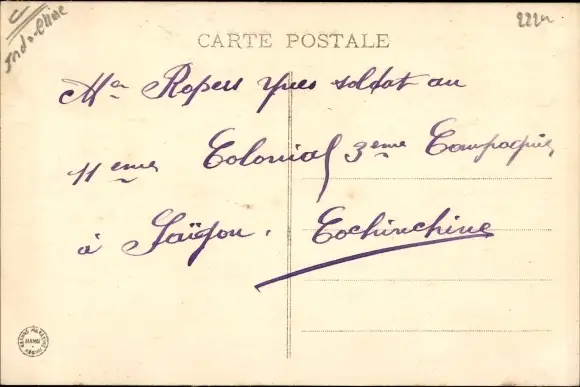 Indo-Chine
222n
CARTE POSTALE
Mr Ropers Yves soldat au
11eme Colonial 3eme Compagnie
à Saïgon. Cochinchine